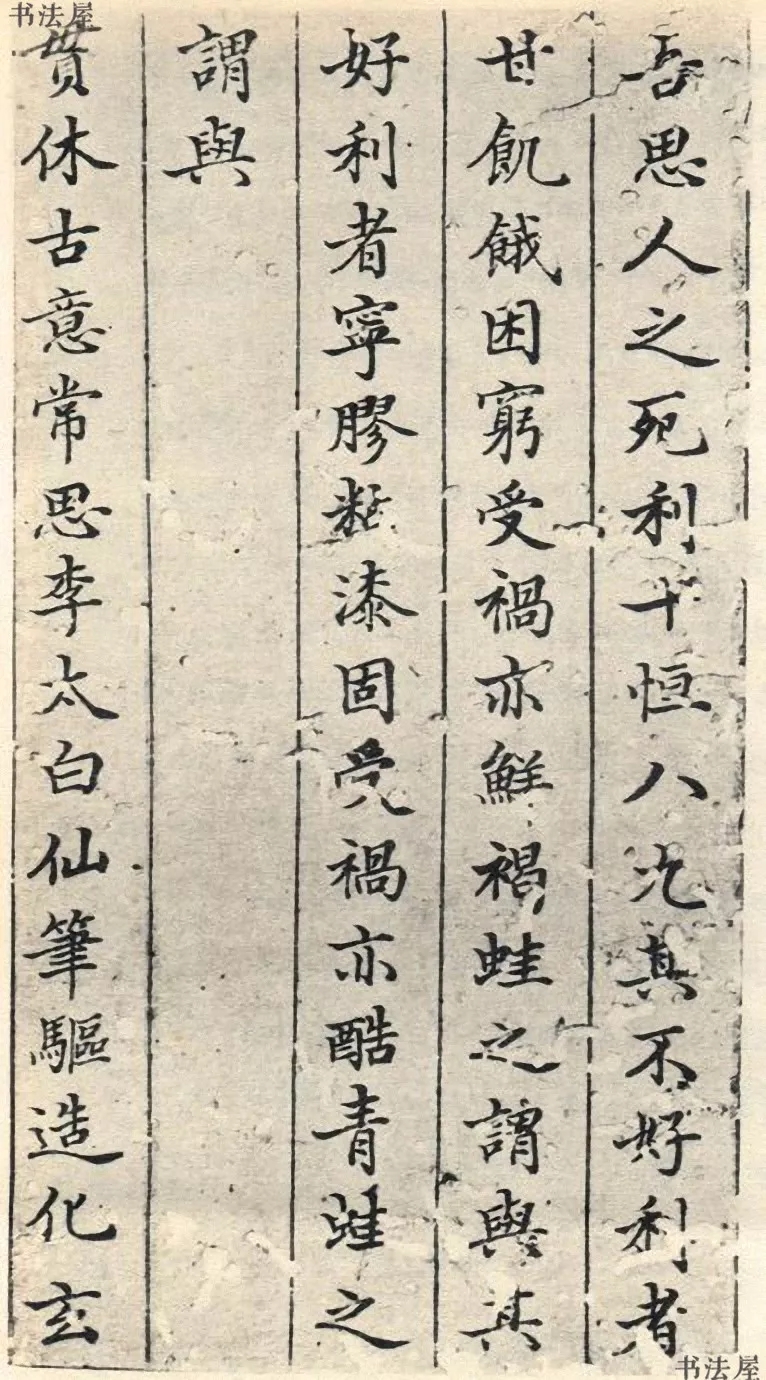 吾思人之死利十恒八九真不好利者
甘飢餓困窮受禍亦鮮褐蛙之謂與其
好利者寧膠粘漆固受禍亦酷青蛙之
謂與
貫休古意常思李太白仙筆驅造化玄
书法屋
书法屋